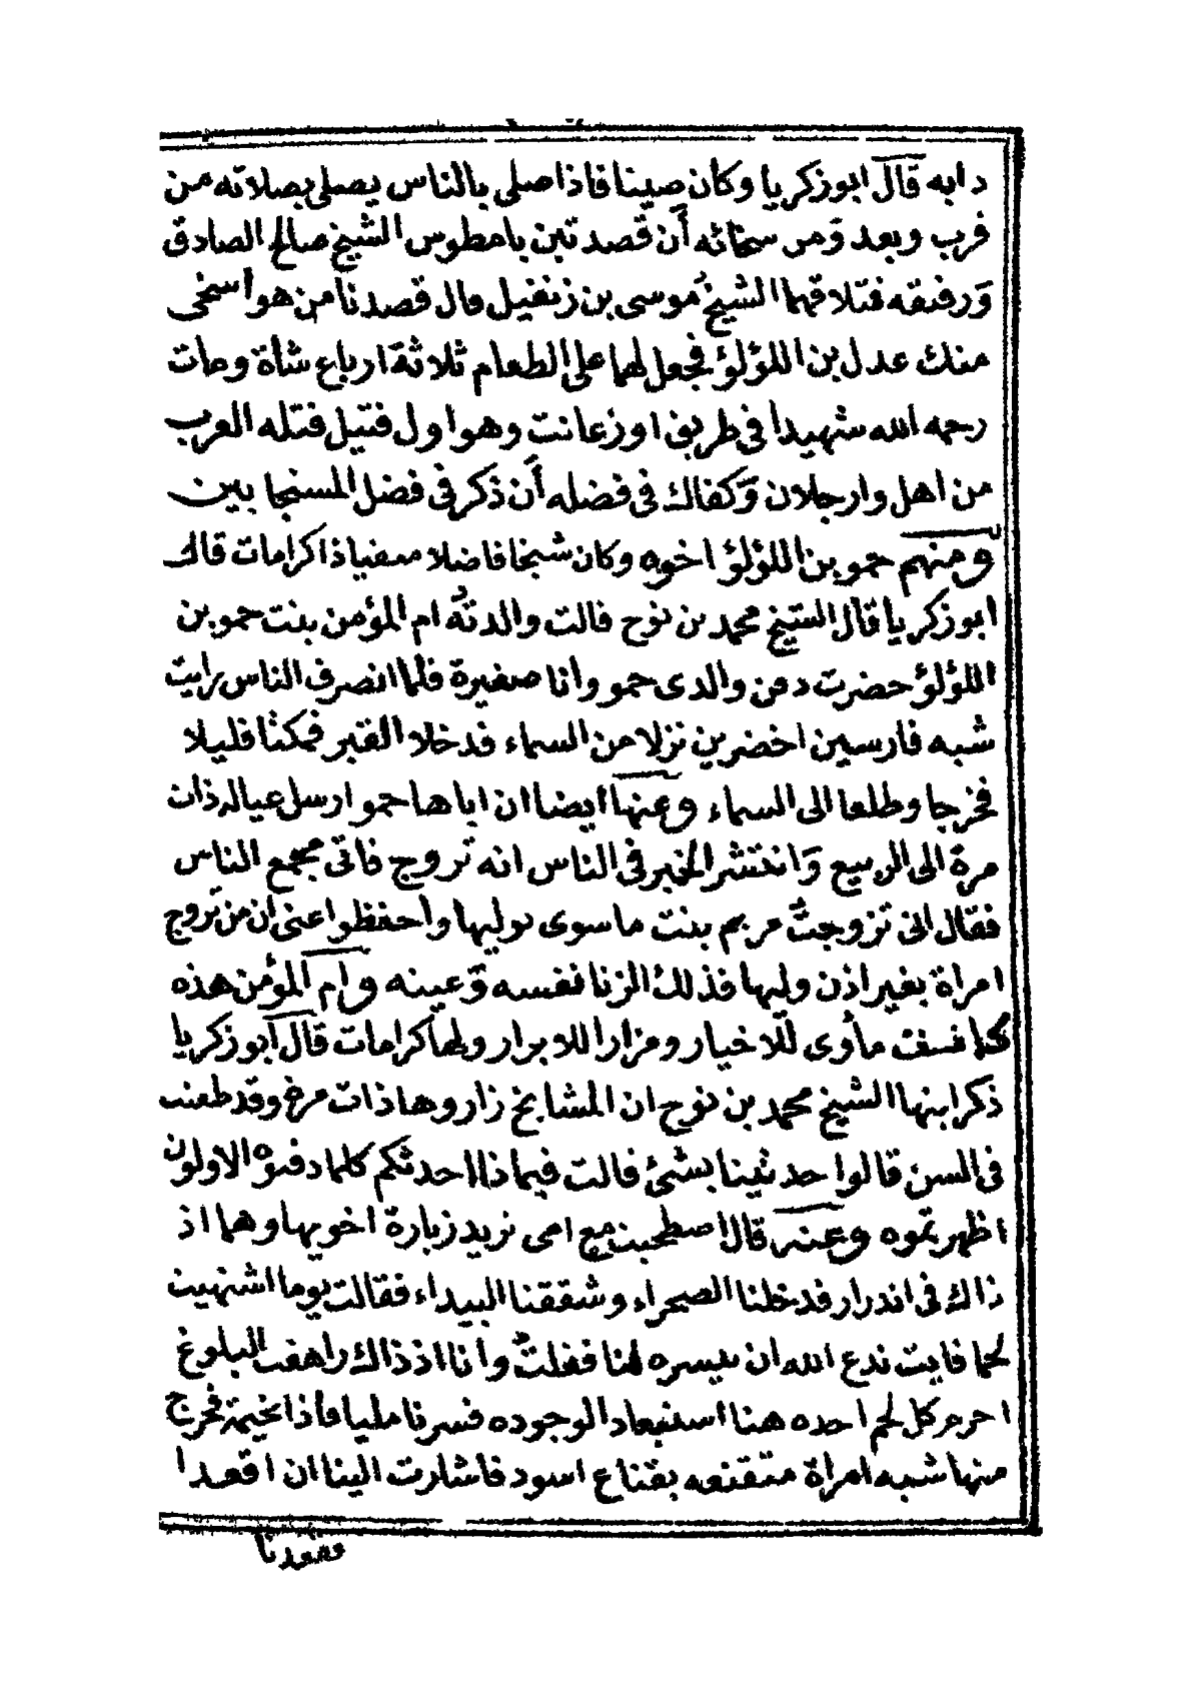 دابه قال ابو زكريا وكان صيتا فاذا صلى بالناس يصلي بصلاته من
قرب وبعد ومن سخائه أن قصد تين بامطوس الشيخ صالح الصادق
ورفيقه فتلاقهما الشيخ موسى بن زنغيل قال قصدنا من هو أسخى
منك عدل بن اللؤلؤ فجعل لهما على الطعام ثلاثة ارباع شأة ومات
رحمه الله شهيدا في طريق اوزعانت وهو اول قتيل قتله العرب
من اهل وارجلان وكفاك في فضله أن ذكر في فضل المستجابين
ومنهم حمو بن اللؤلؤ اخوه وكان شيخا فاضلا سفيا ذا كرامات قال
ابو زكريا قال الشيخ محمد بن نوح قالت والدته ام المؤمن بنت حمو بن
اللؤلؤ حضرت دفن والدى حمو وانا صغيرة فلما انصرف الناس رايت
شبه فارسين اخضرين نزلا من السماء فدخلا القبر فمكثا قليلا
فخرجا وطلعا الى السماء وعنها أيضا ان اباها حمو ارسل عياله ذات
مرة الى الربيع وانتشر الخبر في الناس انه تزوج فاتى مجمع الناس
فقال انى تزوجت مريم بنت ماسوى بوليها واحفظوا عنى ان من تزوج
امراة بغير اذن وليها فذلك الزنا نفسه وعينه وام المؤمن هذه
كانت مأوى للاخيار ومزارا للابرار ولها كرامات قال أبو زكريا
ذكر ابنها الشيخ محمد بن نوح ان المشايخ زاروها ذات مرة وقد طعنت
في السن قالوا حدثينا بشئ قالت فيماذا احدثكم كلما دفنوه الاولون
اظهرتموه وعنه قال اصطحبت مع امى نريد زيارة اخويها وهما اذ
ذاك في اندرار فدخلنا الصحراء وشققنا البيداء فقالت يوما اشتهيت
لحما فايت ندع الله ان ييسره لنا ففعلت وأنا اذ ذاك راهقت البلوغ
احرم كل لحم احده هنا استبعادا لوجوده فسرنا مليا فأذا بخيمة فخرج
منها شبه امراة متقنعه بقناع اسود فاشارت الينا ان اقعدا
وقعدنا